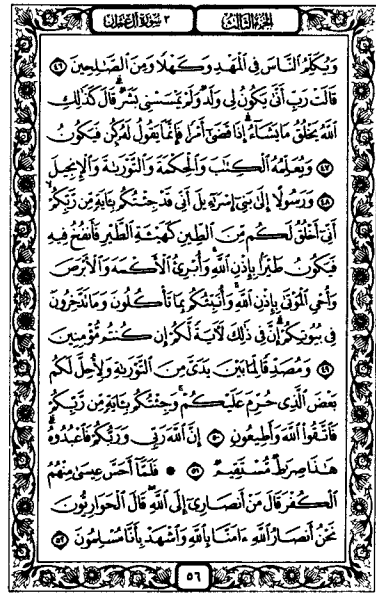 الجزء الثالث ٣ سورة آل عمران
وَيُكَلِّمُ ٱلنَّاسَ فِي ٱلْمَهْدِ وَكَهْلًا وَمِنَ ٱلصَّٰلِحِينَ ٤٦
قَالَتْ رَبِّ أَنَّىٰ يَكُونُ لِي وَلَدٌ وَلَمْ يَمْسَسْنِي بَشَرٌ قَالَ كَذَٰلِكِ
ٱللَّهُ يَخْلُقُ مَا يَشَآءُ إِذَا قَضَىٰٓ أَمْرًا فَإِنَّمَا يَقُولُ لَهُۥ كُن فَيَكُونُ
٤٧ وَيُعَلِّمُهُ ٱلْكِتَٰبَ وَٱلْحِكْمَةَ وَٱلتَّوْرَىٰةَ وَٱلْإِنجِيلَ
٤٨ وَرَسُولًا إِلَىٰ بَنِىٓ إِسْرَٰٓءِيلَ أَنِّى قَدْ جِئْتُكُم بِـَٔايَةٍ مِّن رَّبِّكُمْ
أَنِّىٓ أَخْلُقُ لَكُم مِّنَ ٱلطِّينِ كَهَيْـَٔةِ ٱلطَّيْرِ فَأَنفُخُ فِيهِ
فَيَكُونُ طَيْرًۢا بِإِذْنِ ٱللَّهِ وَأُبْرِئُ ٱلْأَكْمَهَ وَٱلْأَبْرَصَ
وَأُحْىِ ٱلْمَوْتَىٰ بِإِذْنِ ٱللَّهِ وَأُنَبِّئُكُم بِمَا تَأْكُلُونَ وَمَا تَدَّخِرُونَ
فِى بُيُوتِكُمْ إِنَّ فِى ذَٰلِكَ لَءَايَةً لَّكُمْ إِن كُنتُم مُّؤْمِنِينَ
٤٩ وَمُصَدِّقًا لِّمَا بَيْنَ يَدَىَّ مِنَ ٱلتَّوْرَىٰةِ وَلِأُحِلَّ لَكُم
بَعْضَ ٱلَّذِى حُرِّمَ عَلَيْكُمْ وَجِئْتُكُم بِـَٔايَةٍ مِّن رَّبِّكُمْ
فَٱتَّقُوا۟ ٱللَّهَ وَأَطِيعُونِ ٥٠ إِنَّ ٱللَّهَ رَبِّى وَرَبُّكُمْ فَٱعْبُدُوهُ
هَٰذَا صِرَٰطٌ مُّسْتَقِيمٌ ٥١ فَلَمَّآ أَحَسَّ عِيسَىٰ مِنْهُمُ
ٱلْكُفْرَ قَالَ مَنْ أَنصَارِىٓ إِلَى ٱللَّهِ قَالَ ٱلْحَوَارِيُّونَ
نَحْنُ أَنصَارُ ٱللَّهِ ءَامَنَّا بِٱللَّهِ وَٱشْهَدْ بِأَنَّا مُسْلِمُونَ ٥٢
٥٦